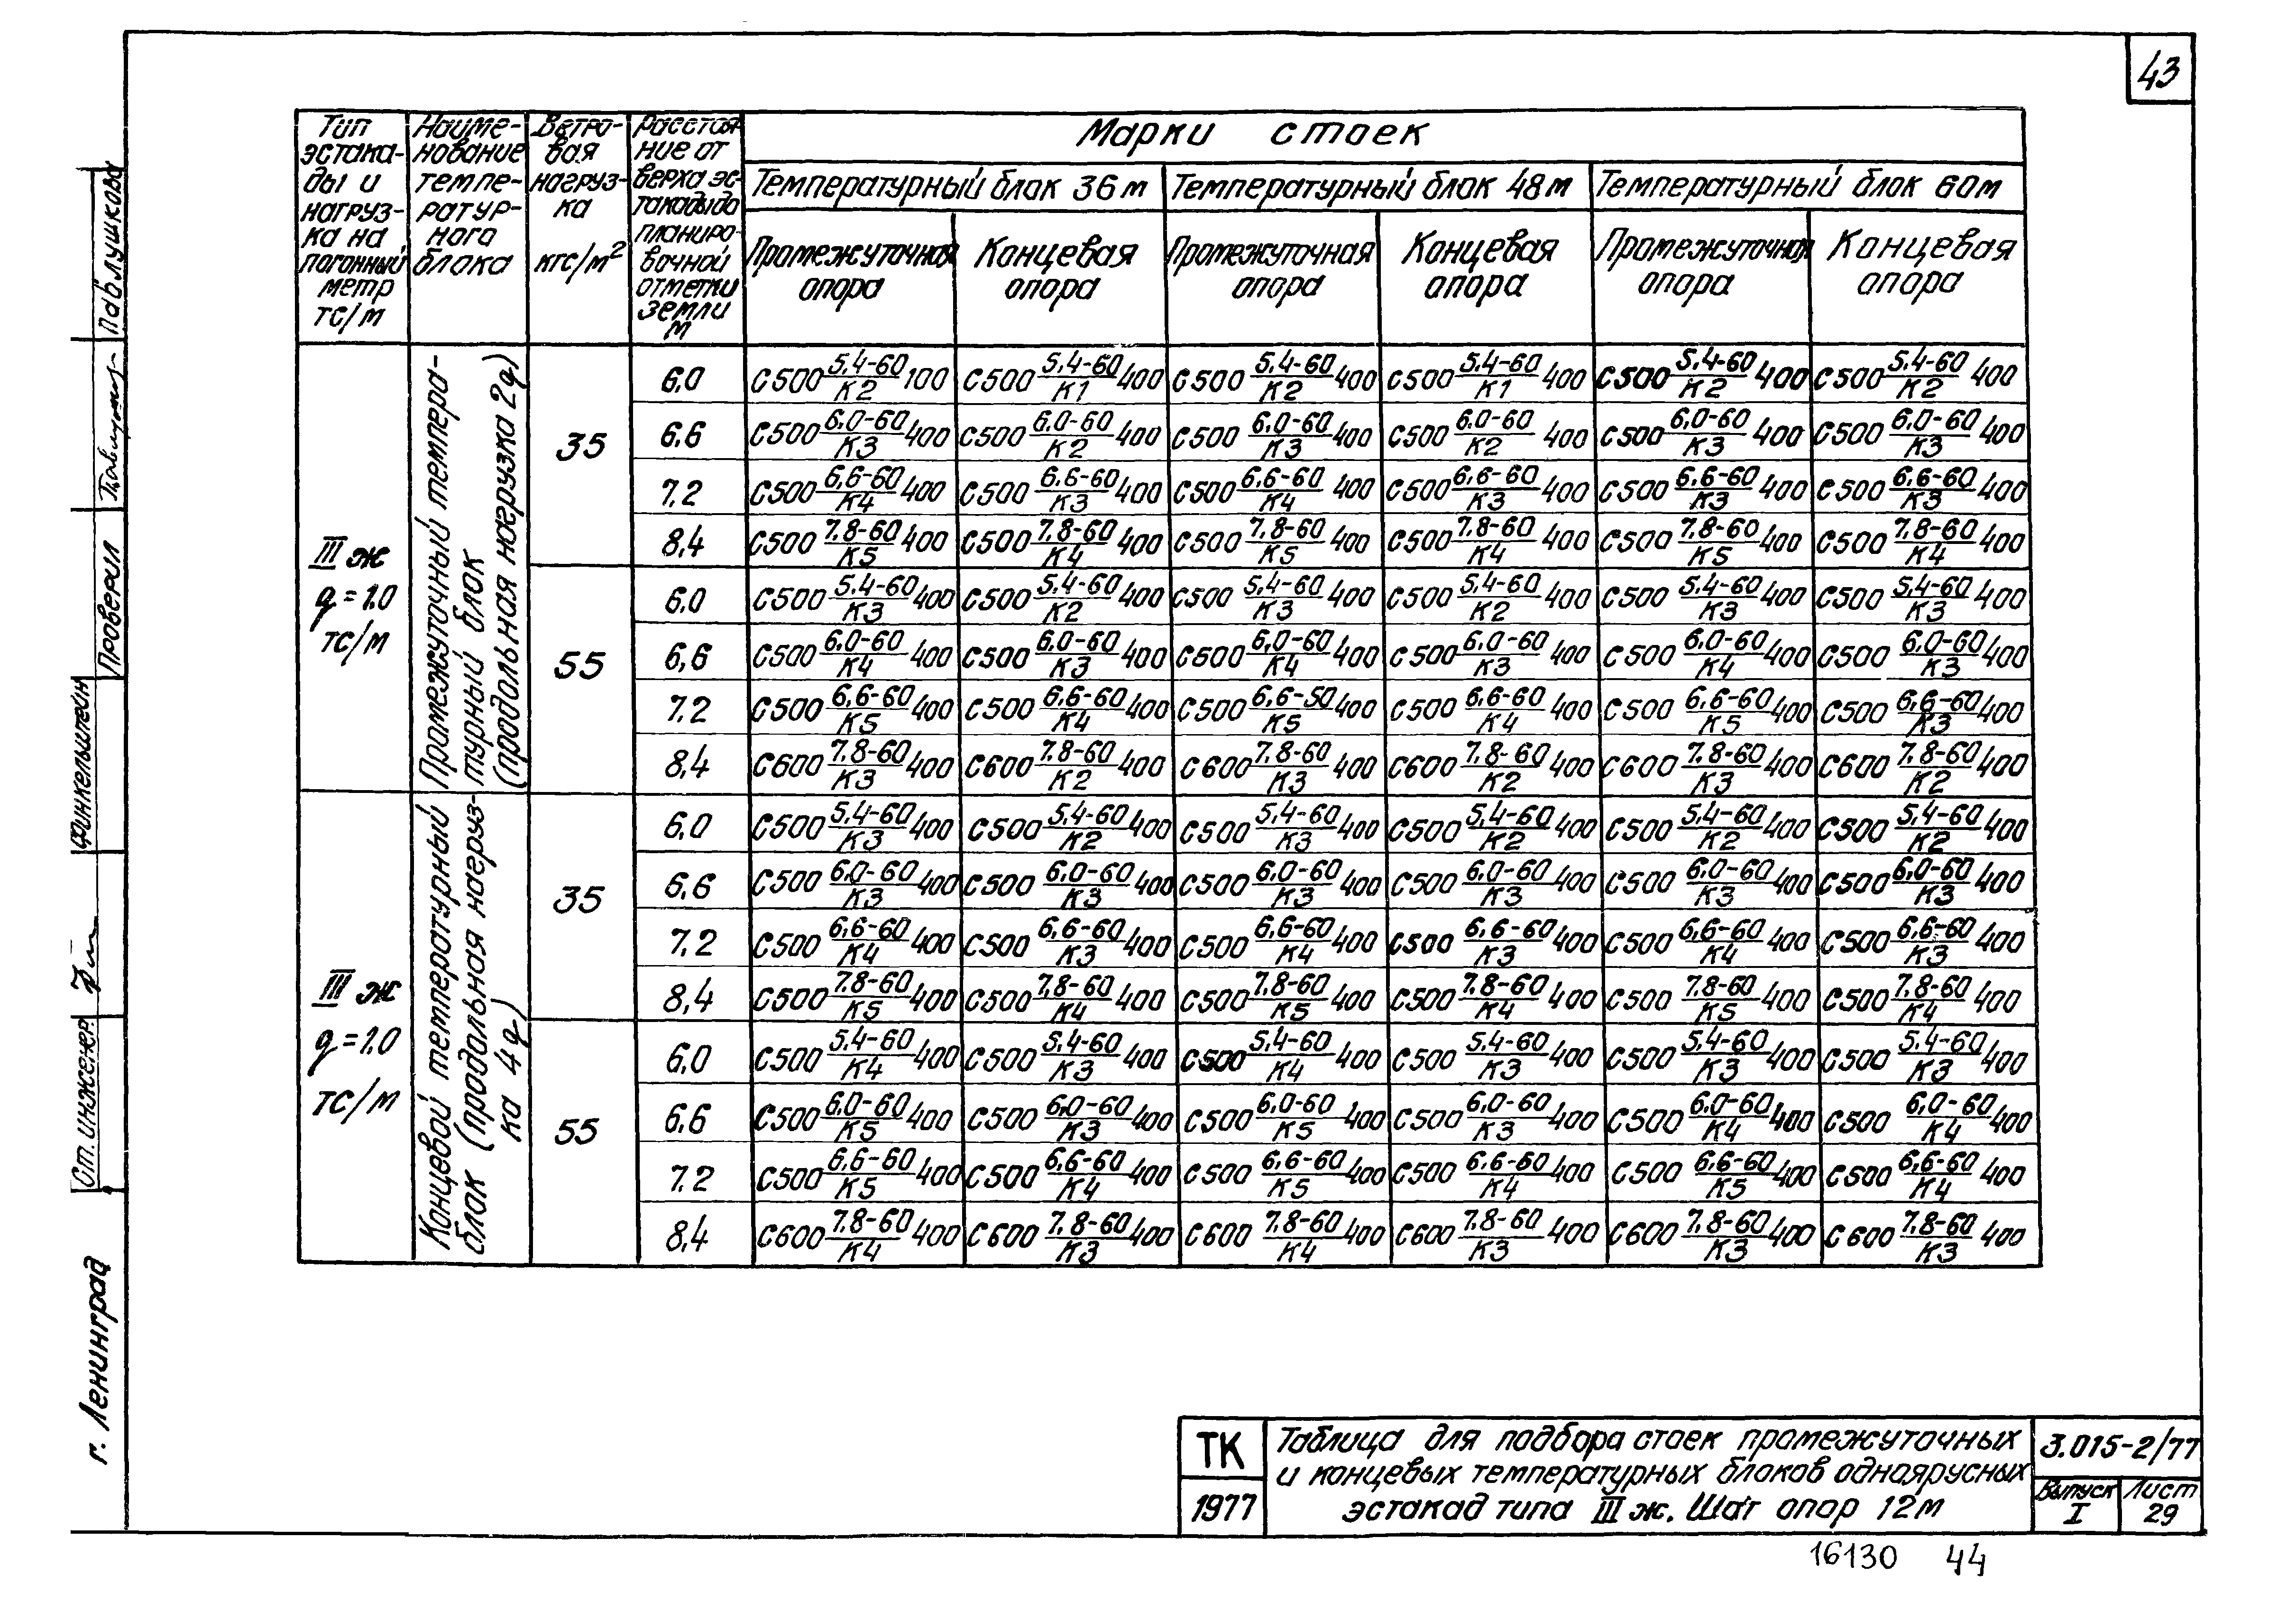 43
Тип эстакады и нагрузка на погонный метр тс/м
Наименование температурного блока
Ветровая нагрузка кгс/м²
Расстояние от верха эстакады до планировочной отметки земли м
Марки стоек
Температурный блок 36м
Температурный блок 48м
Температурный блок 60м
Промежуточная опора
Концевая опора
Промежуточная опора
Концевая опора
Промежуточная опора
Концевая опора
III ж q=1.0 тс/м
Промежуточный температурный блок (продольная нагрузка 2q)
35
6,0 C500 5,4-60/К2 100 C500 5,4-60/К1 400 C500 5,4-60/К2 400 C500 5,4-60/К1 400 C500 5,4-60/К2 400 C500 5,4-60/К2 400
6,6 C500 6,0-60/К3 400 C500 6,0-60/К2 400 C500 6,0-60/К3 400 C500 6,0-60/К2 400 C500 6,0-60/К3 400 C500 6,0-60/К3 400
7,2 C500 6,6-60/К4 400 C500 6,6-60/К3 400 C500 6,6-60/К4 400 C500 6,6-60/К3 400 C500 6,6-60/К3 400 C500 6,6-60/К3 400
8,4 C500 7,8-60/К5 400 C500 7,8-60/К4 400 C500 7,8-60/К5 400 C500 7,8-60/К4 400 C500 7,8-60/К5 400 C500 7,8-60/К4 400
55
6,0 C500 5,4-60/К3 400 C500 5,4-60/К2 400 C500 5,4-60/К3 400 C500 5,4-60/К2 400 C500 5,4-60/К3 400 C500 5,4-60/К3 400
6,6 C500 6,0-60/К4 400 C500 6,0-60/К3 400 C500 6,0-60/К4 400 C500 6,0-60/К3 400 C500 6,0-60/К4 400 C500 6,0-60/К3 400
7,2 C500 6,6-60/К5 400 C500 6,6-60/К4 400 C500 6,6-50/К5 400 C500 6,6-60/К4 400 C500 6,6-60/К5 400 C500 6,6-60/К3 400
8,4 C600 7,8-60/К3 400 C600 7,8-60/К2 400 C600 7,8-60/К3 400 C600 7,8-60/К2 400 C600 7,8-60/К3 400 C600 7,8-60/К2 400
III ж q=1.0 тс/м
Концевой температурный блок (продольная нагрузка 4q)
35
6,0 C500 5,4-60/К3 400 C500 5,4-60/К2 400 C500 5,4-60/К3 400 C500 5,4-60/К2 400 C500 5,4-60/К2 400 C500 5,4-60/К2 400
6,6 C500 6,0-60/К3 400 C500 6,0-60/К3 400 C500 6,0-60/К3 400 C500 6,0-60/К3 400 C500 6,0-60/К3 400 C500 6,0-60/К3 400
7,2 C500 6,6-60/К4 400 C500 6,6-60/К3 400 C500 6,6-60/К4 400 C500 6,6-60/К3 400 C500 6,6-60/К4 400 C500 6,6-60/К3 400
8,4 C500 7,8-60/К5 400 C500 7,8-60/К4 400 C500 7,8-60/К5 400 C500 7,8-60/К4 400 C500 7,8-60/К5 400 C500 7,8-60/К4 400
55
6,0 C500 5,4-60/К4 400 C500 5,4-60/К3 400 C500 5,4-60/К4 400 C500 5,4-60/К3 400 C500 5,4-60/К3 400 C500 5,4-60/К3 400
6,6 C500 6,0-60/К5 400 C500 6,0-60/К3 400 C500 6,0-60/К5 400 C500 6,0-60/К3 400 C500 6,0-60/К4 400 C500 6,0-60/К4 400
7,2 C500 6,6-60/К5 400 C500 6,6-60/К4 400 C500 6,6-60/К5 400 C500 6,6-60/К4 400 C500 6,6-60/К5 400 C500 6,6-60/К4 400
8,4 C600 7,8-60/К4 400 C600 7,8-60/К3 400 C600 7,8-60/К4 400 C600 7,8-60/К3 400 C600 7,8-60/К3 400 C600 7,8-60/К3 400
Павлушкова
Проверил
Финкельштейн
Ст. инженер
г. Ленинград
ТК
1977
Таблица для подбора стоек промежуточных
и концевых температурных блоков одноярусных
эстакад типа III ж. Шаг опор 12м
3.015-2/77
Выпуск I
Лист 29
16130 44